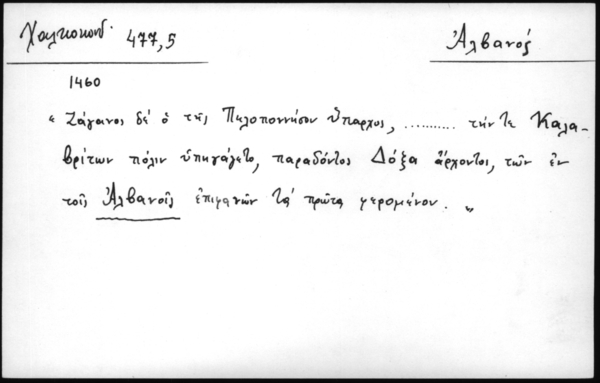 Χαλκοκονδ. 477,5
Ἀλβανός
1460
« Ζάγανος δέ ὁ τῆς Πελοποννήσου ὕπαρχος, .......... τήν τε Καλα-
βρίτων πόλιν ὑπηγάγετο, παραδόντος Δόξα ἄρχοντος, τῶν ἐν
τοῖς Ἀλβανοῖς ἐπιφανῶν τά πρῶτα φερομένου. »